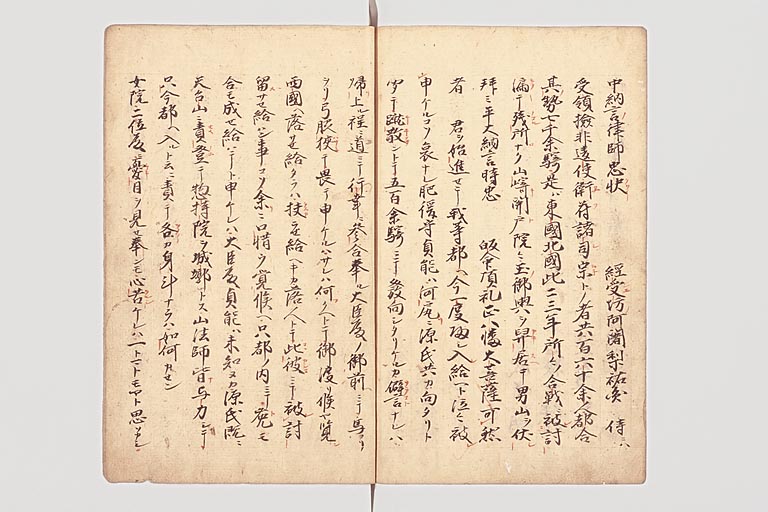 中納言律師忠快 経受坊阿闍梨祐圓 侍ニハ
受領検非違使衛府諸司宗トノ者共百六十余人都合
其勢七千余騎是ハ東國北國此二三年所々ノ合戦ニ被討
漏テ残所ナリ山崎関戸院ニ玉御輿ヲ舁居テ男山ヲ伏
拝ミ平大納言時忠 帰命頂礼正八幡大菩薩可然
者 君ヲ始進セテ我等都ヘ今一度入給ヘト泣々被
申ケルコソ哀ナレ肥後守貞能ハ河尻ニ源氏共カ向タリト
聞テ蹴散ントテ五百余騎ニテ發向シタリケルカ僻言ナレハ
帰上ル程ニ道ニテ行幸ニ参合奉ル大臣殿ノ御前ニテ馬ヨリ
ヲリ弓脇挟テ畏テ申ケルハサレハ何クヘトテ御渡リ候ヤ覧
西國ヘ落サセ給タラハ扶ラセ給ヘキカ落人トテ此彼ニテ被討
留サセ給ハン事コソ余ニ口惜ウ覚候ヘ只都ノ内ニテ兎モ
合モ成セ給ハテト申ケレハ大臣殿貞能ハ未知ヌカ源氏既ニ
天台山ニ責登テ惣持院ヲ城墎トス山法師皆与力シテ
只今都ヘ入ルト云ニ責テ各カ身斗ナラハ如何カセン
女院二位殿ニ憂目ヲ見セ奉ンモ心苦ケレハ一トマトモヤト思ソカシ